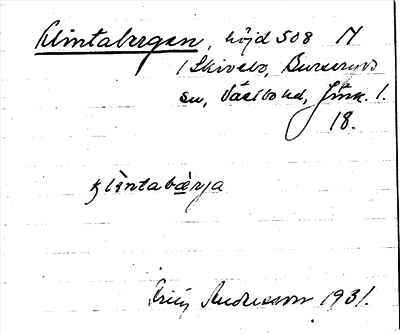 Klintabergen, höjd SO8 N
i Skivebo, Burseryds
sn, Västbo hd, Jönk. l.
18.
klintabærja
Frits Andersson 1931.